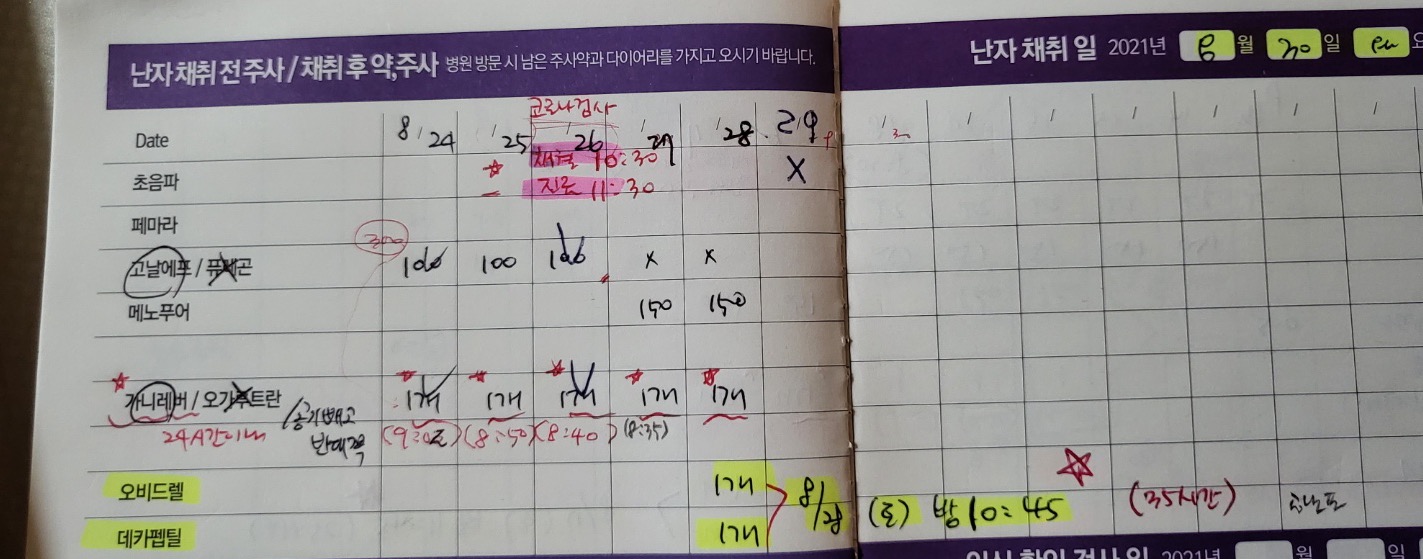 난자 채취 전 주사 / 채취 후 약,주사 병원 방문 시 남은 주사약과 다이어리를 가지고 오시기 바랍니다.
난자 채취 일 2021년 8 월 30 일
코로나검사
Date 8/24 /25 /26 /27 /28 29
채혈 10:30
초음파 X
진료 11:30
페마라
300
고날에프 / 퓨레곤 100 100 100 x x
메노푸어 150 150
가니레버 / 오가루트란 1개 1개 1개 1개 1개
24시간이내 /공기빼고 반대쪽 (9:02) (8:50) (8:40) (8:35)
오비드렐 1개
8/28 (토) 밤 10:45 (35시간)
데카펩틸 1개
2021년 월 일